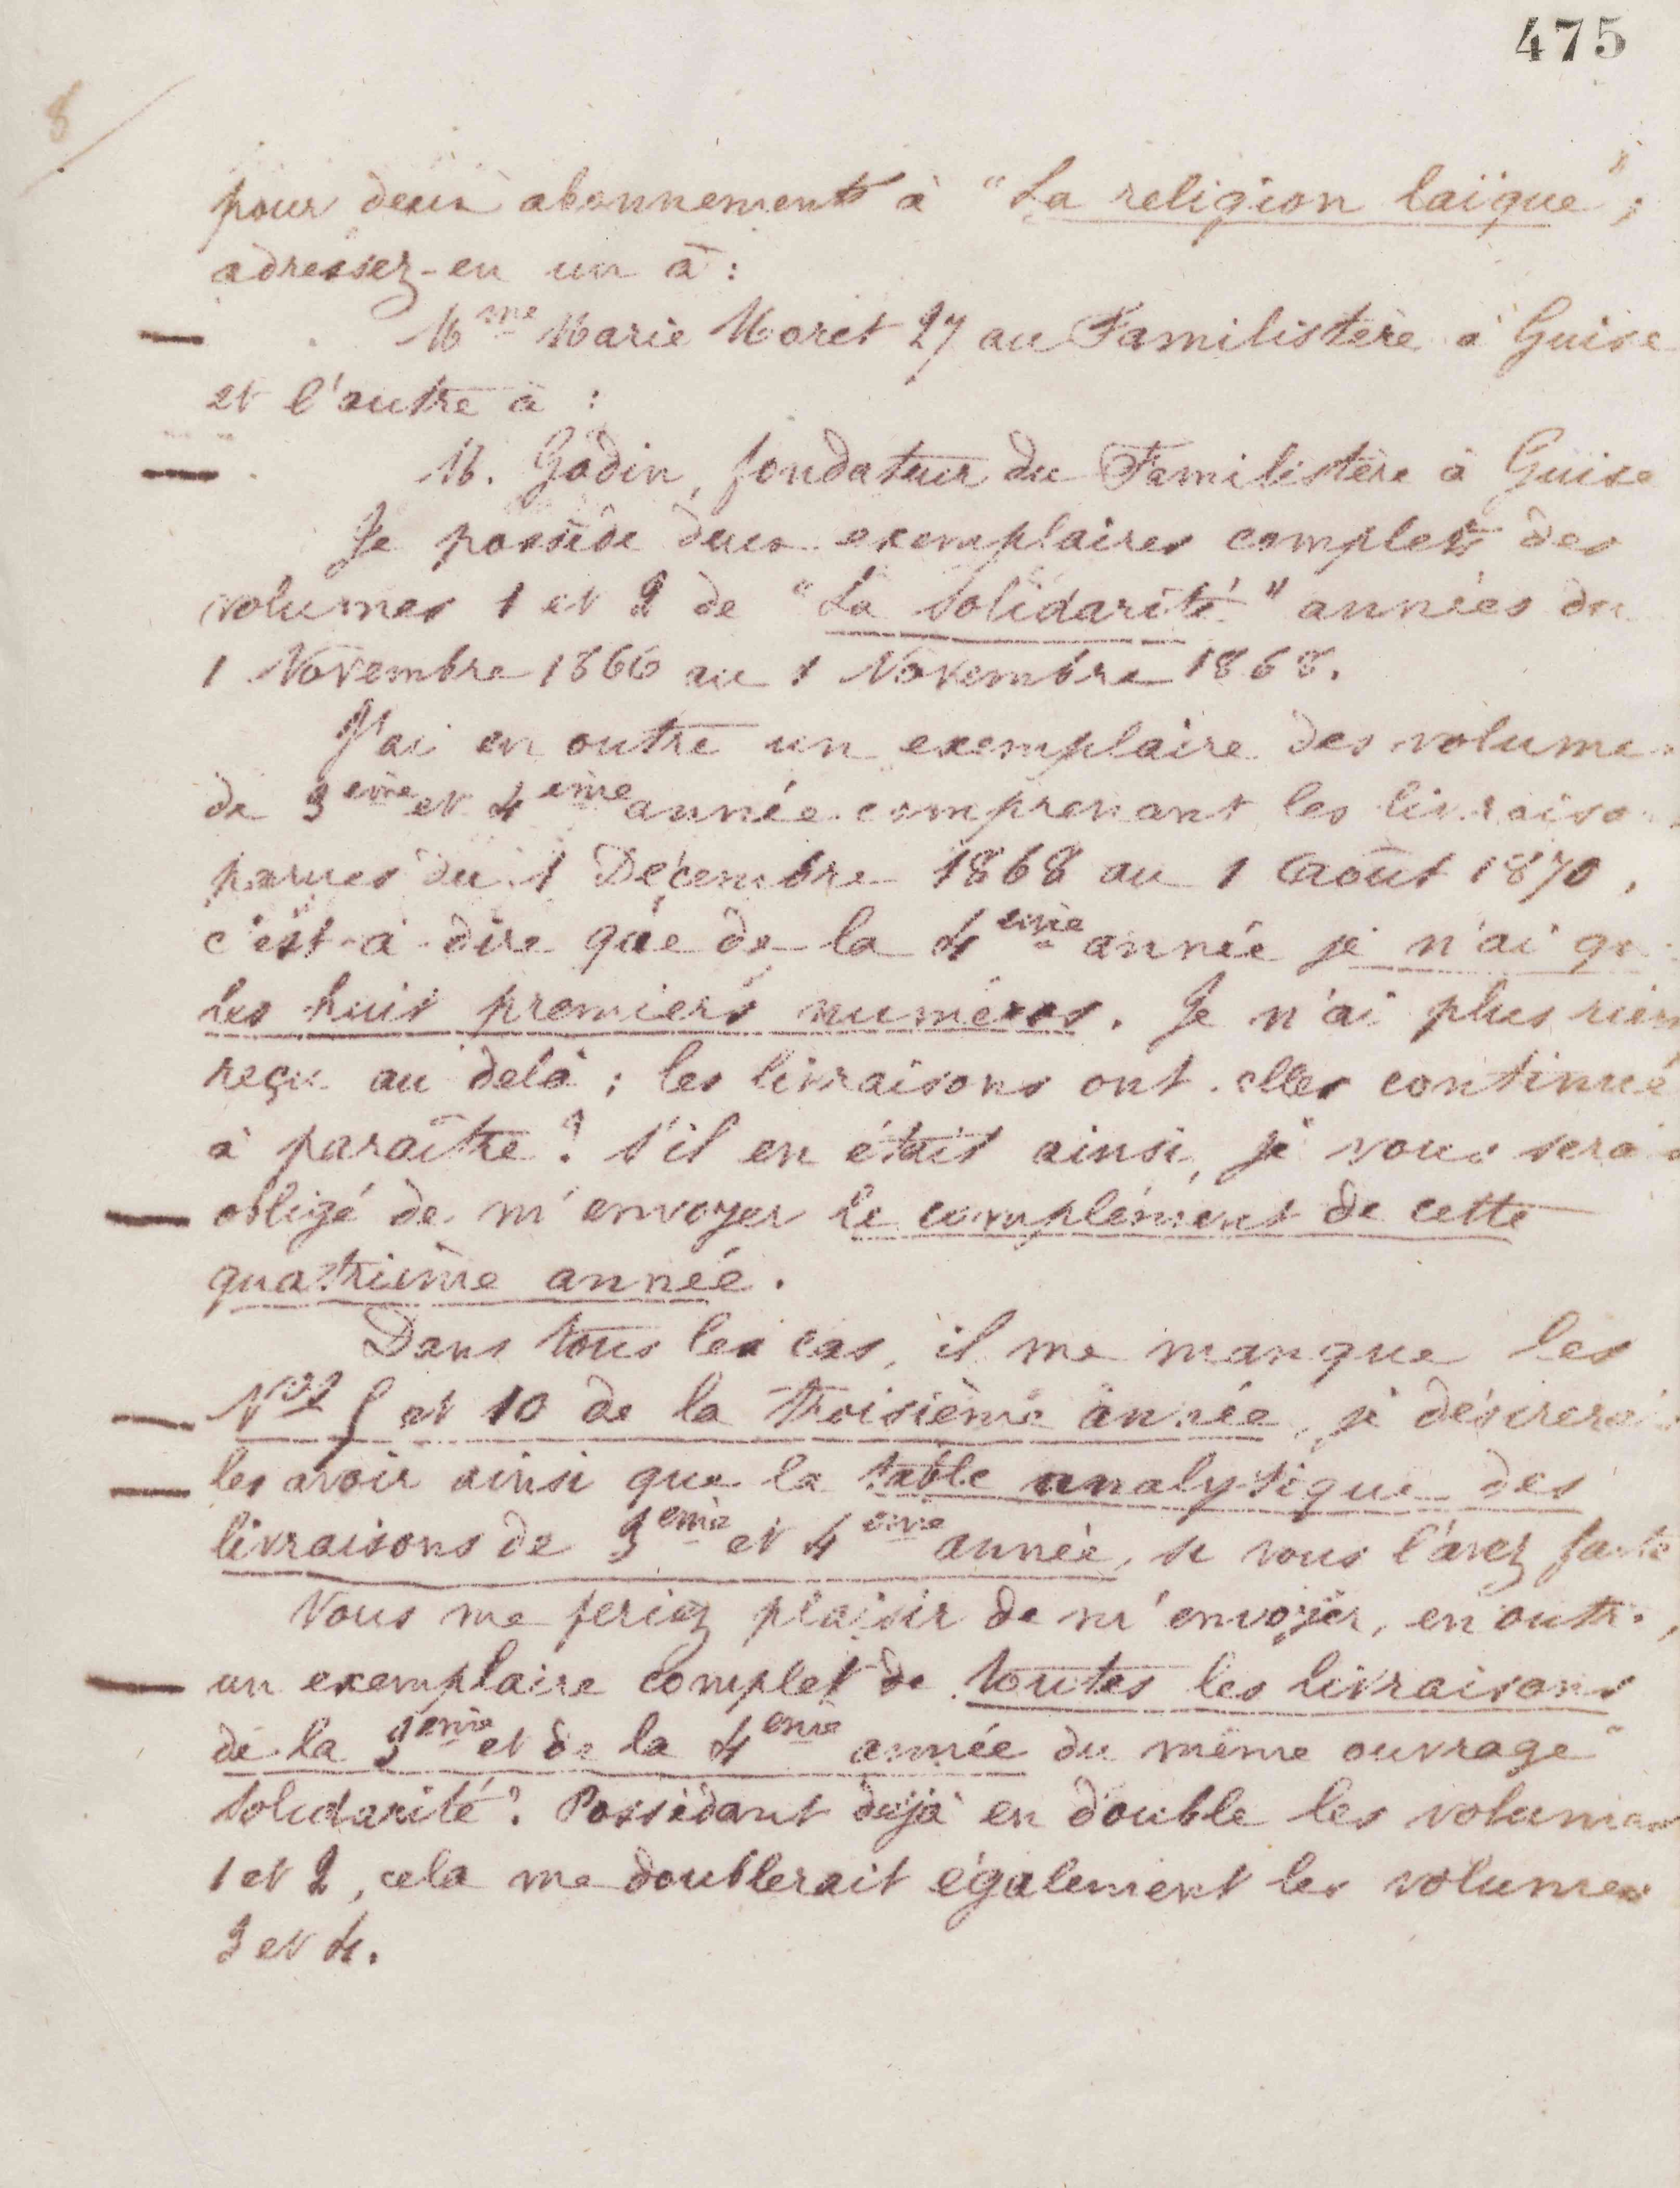 475
8
pour deux abonnements à "La religion laïque";
adressez-en un à :
Mme Marie Moret 27 au Familistère à Guise
et l'autre à :
M. Godin, fondateur du Familistère à Guise
Je possède deux exemplaires complets des
volumes 1 et 2 de "La Solidarité" années du
1 Novembre 1866 au 1 Novembre 1868.
J'ai en outre un exemplaire des volumes
de 3ème et 4ème année comprenant les livraisons
parues du 1 Décembre 1868 au 1 Août 1870,
c'est-à-dire que de la 4ème année je n'ai que
les huit premiers numéros. Je n'ai plus rien
reçu au delà ; les livraisons ont-elles continué
à paraître ? S'il en était ainsi, je vous serais
obligé de m'envoyer le complément de cette
quatrième année.
Dans tous les cas, il me manque les
Nos et 10 de la troisième année, je désirerais
les avoir ainsi que la table analytique des
livraisons de 3ème et 4ème année, si vous l'avez faite
Vous me feriez plaisir de m'envoyer, en outre,
un exemplaire complet de toutes les livraisons
de la 3ème et de la 4ème année du même ouvrage "
Solidarité". Possédant déjà en double les volumes
1 et 2, cela me doublerait également les volumes
3 et 4.